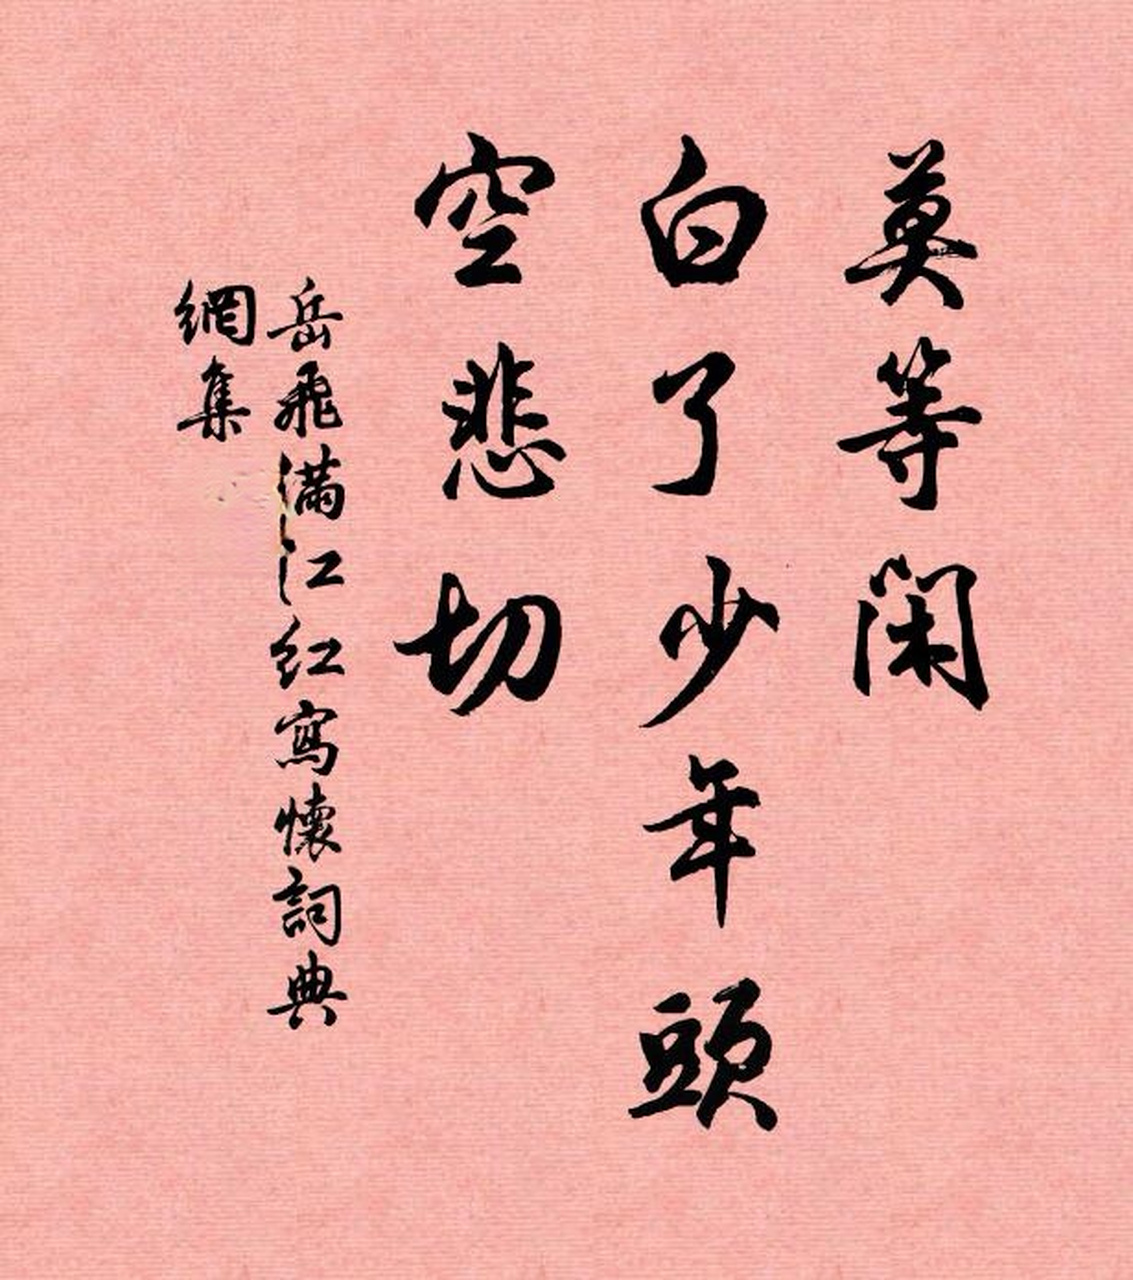 莫等閑
白了少年頭
空悲切
岳飛滿江红寫懷詞典
網集